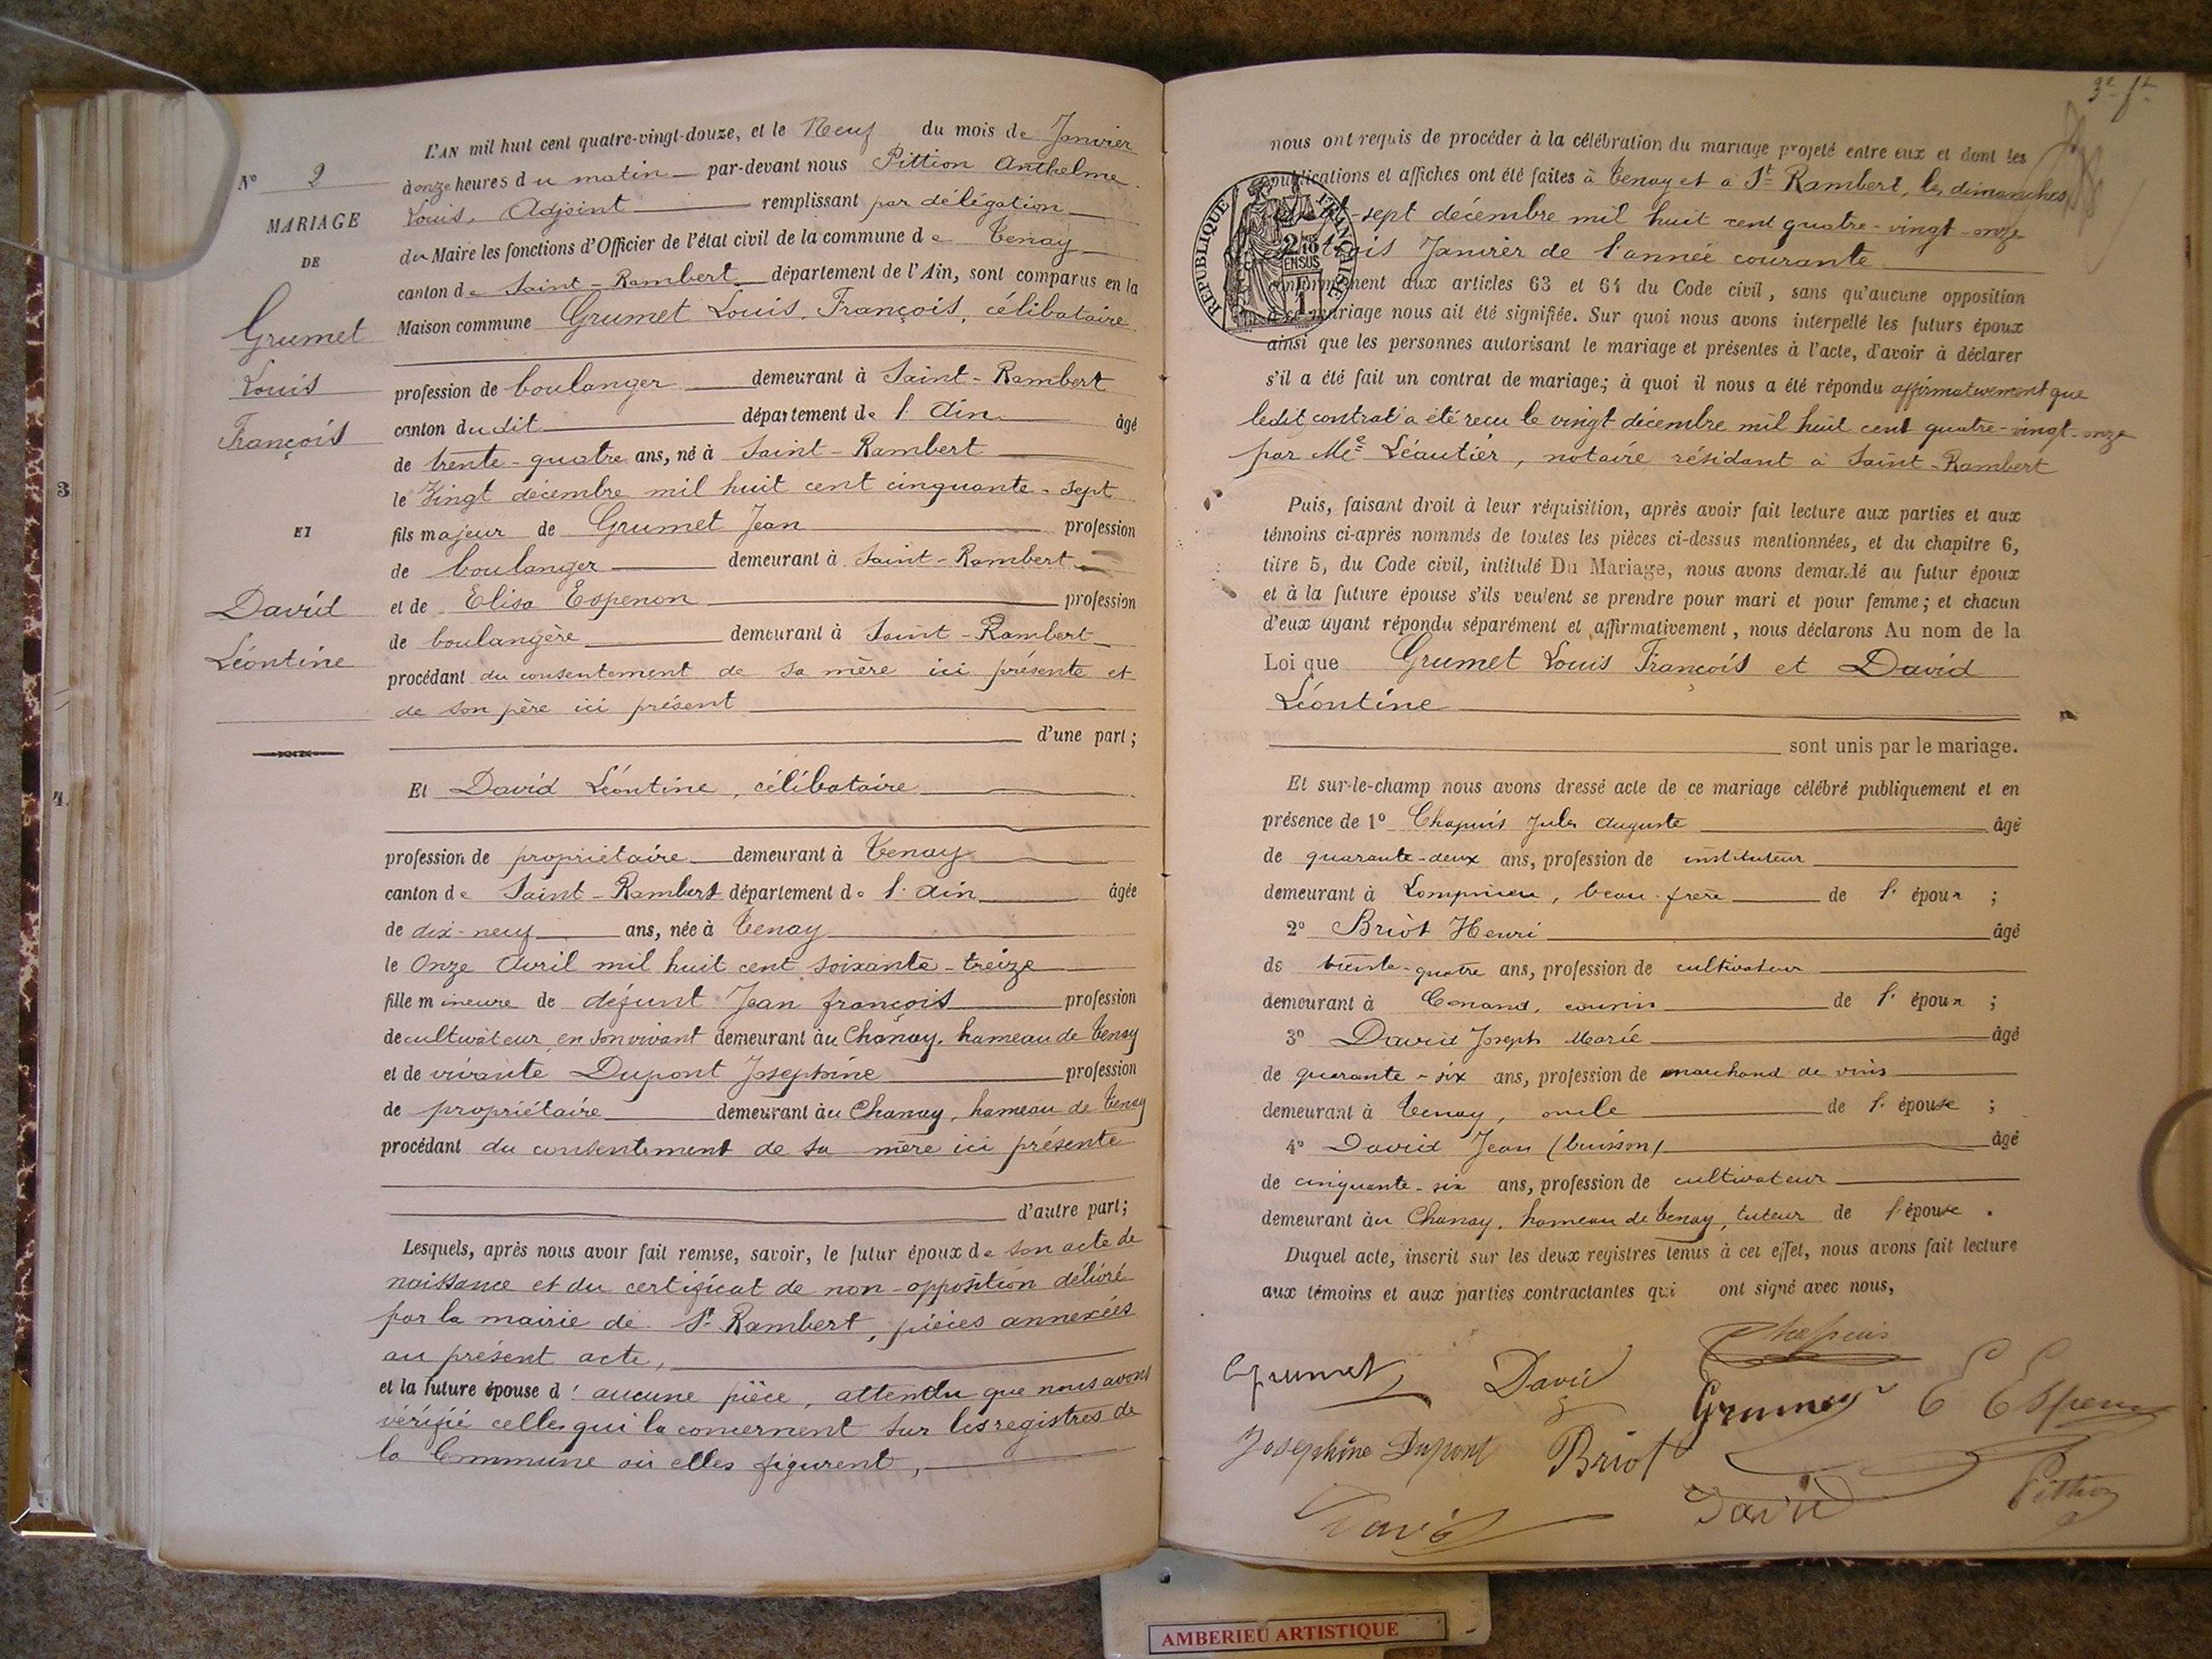 L'AN mil huit cent quatre-vingt-douze, et le Neuf du mois de Janvier
à onze heures du matin par-devant nous Pittion Anthelme
Louis, Adjoint remplissant par délégation
du Maire les fonctions d'Officier de l'état civil de la commune de Tenay
canton de Saint-Rambert département de l'Ain, sont comparus en la
Maison commune Grumet Louis, François, célibataire
profession de boulanger demeurant à Saint-Rambert
canton dudit département de l'Ain âgé
de trente-quatre ans, né à Saint-Rambert
le Vingt décembre mil huit cent cinquante-sept
fils majeur de Grumet Jean profession
de boulanger demeurant à Saint-Rambert
et de Elisa Espenon profession
de boulangère demeurant à Saint-Rambert
procédant du consentement de sa mère ici présente et
de son père ici présent
d'une part;
Et David Léontine, célibataire
profession de propriétaire demeurant à Tenay
canton de Saint-Rambert département de l'Ain âgée
de dix-neuf ans, née à Tenay
le Onze Avril mil huit cent soixante-treize
fille mineure de défunt Jean françois profession
de cultivateur en son vivant demeurant au Chanay, hameau de Tenay
et de vivante Dupont Joséphine profession
de propriétaire demeurant au Chanay, hameau de Tenay
procédant du consentement de sa mère ici présente
d'autre part;
Lesquels, après nous avoir fait remise, savoir, le futur époux de son acte de
naissance et du certificat de non-opposition délivré
par la mairie de St Rambert, pièces annexées
au présent acte,
et la future épouse d' aucune pièce, attendu que nous avons
vérifié celles qui la concernent sur les registres de
la Commune où elles figurent,
N° 2
MARIAGE
DE
Grumet
Louis
François
ET
David
Léontine
3
4.
3e ft
nous ont requis de procéder à la célébration du mariage projeté entre eux et dont les
publications et affiches ont été faites à Tenay et à St Rambert, les dimanches
vingt-sept décembre mil huit cent quatre-vingt-onze
et trois Janvier de l'année courante
conformément aux articles 63 et 64 du Code civil, sans qu'aucune opposition
à ce mariage nous ait été signifiée. Sur quoi nous avons interpellé les futurs époux
ainsi que les personnes autorisant le mariage et présentes à l'acte, d'avoir à déclarer
s'il a été fait un contrat de mariage; à quoi il nous a été répondu affirmativement que
ledit contrat a été reçu le vingt décembre mil huit cent quatre-vingt-onze
par Me Léautier, notaire résidant à Saint-Rambert
Puis, faisant droit à leur réquisition, après avoir fait lecture aux parties et aux
témoins ci-après nommés de toutes les pièces ci-dessus mentionnées, et du chapitre 6,
titre 5, du Code civil, intitulé Du Mariage, nous avons demandé au futur époux
et à la future épouse s'ils veulent se prendre pour mari et pour femme; et chacun
d'eux ayant répondu séparément et affirmativement, nous déclarons Au nom de la
Loi que Grumet Louis François et David
Léontine
sont unis par le mariage.
Et sur-le-champ nous avons dressé acte de ce mariage célébré publiquement et en
présence de 1° Chapuis Jules Auguste âgé
de quarante-deux ans, profession de instituteur
demeurant à Lompnieu, beau-frère de l'époux;
2° Briot Henri âgé
de trente-quatre ans, profession de cultivateur
demeurant à cousin de l'époux;
3° David Joseph Marie âgé
de quarante-six ans, profession de marchand de vins
demeurant à Tenay, oncle de l'épouse;
4° David Jean (buisson) âgé
de cinquante-six ans, profession de cultivateur
demeurant au Chanay, hameau de Tenay, tuteur de l'épouse.
Duquel acte, inscrit sur les deux registres tenus à cet effet, nous avons fait lecture
aux témoins et aux parties contractantes qui ont signé avec nous,
Grumet David Chapuis
Grumet E Espenon
Joséphine Dupont Briot
David David Pittion
RÉPUBLIQUE FRANÇAISE
AMBERIEU ARTISTIQUE